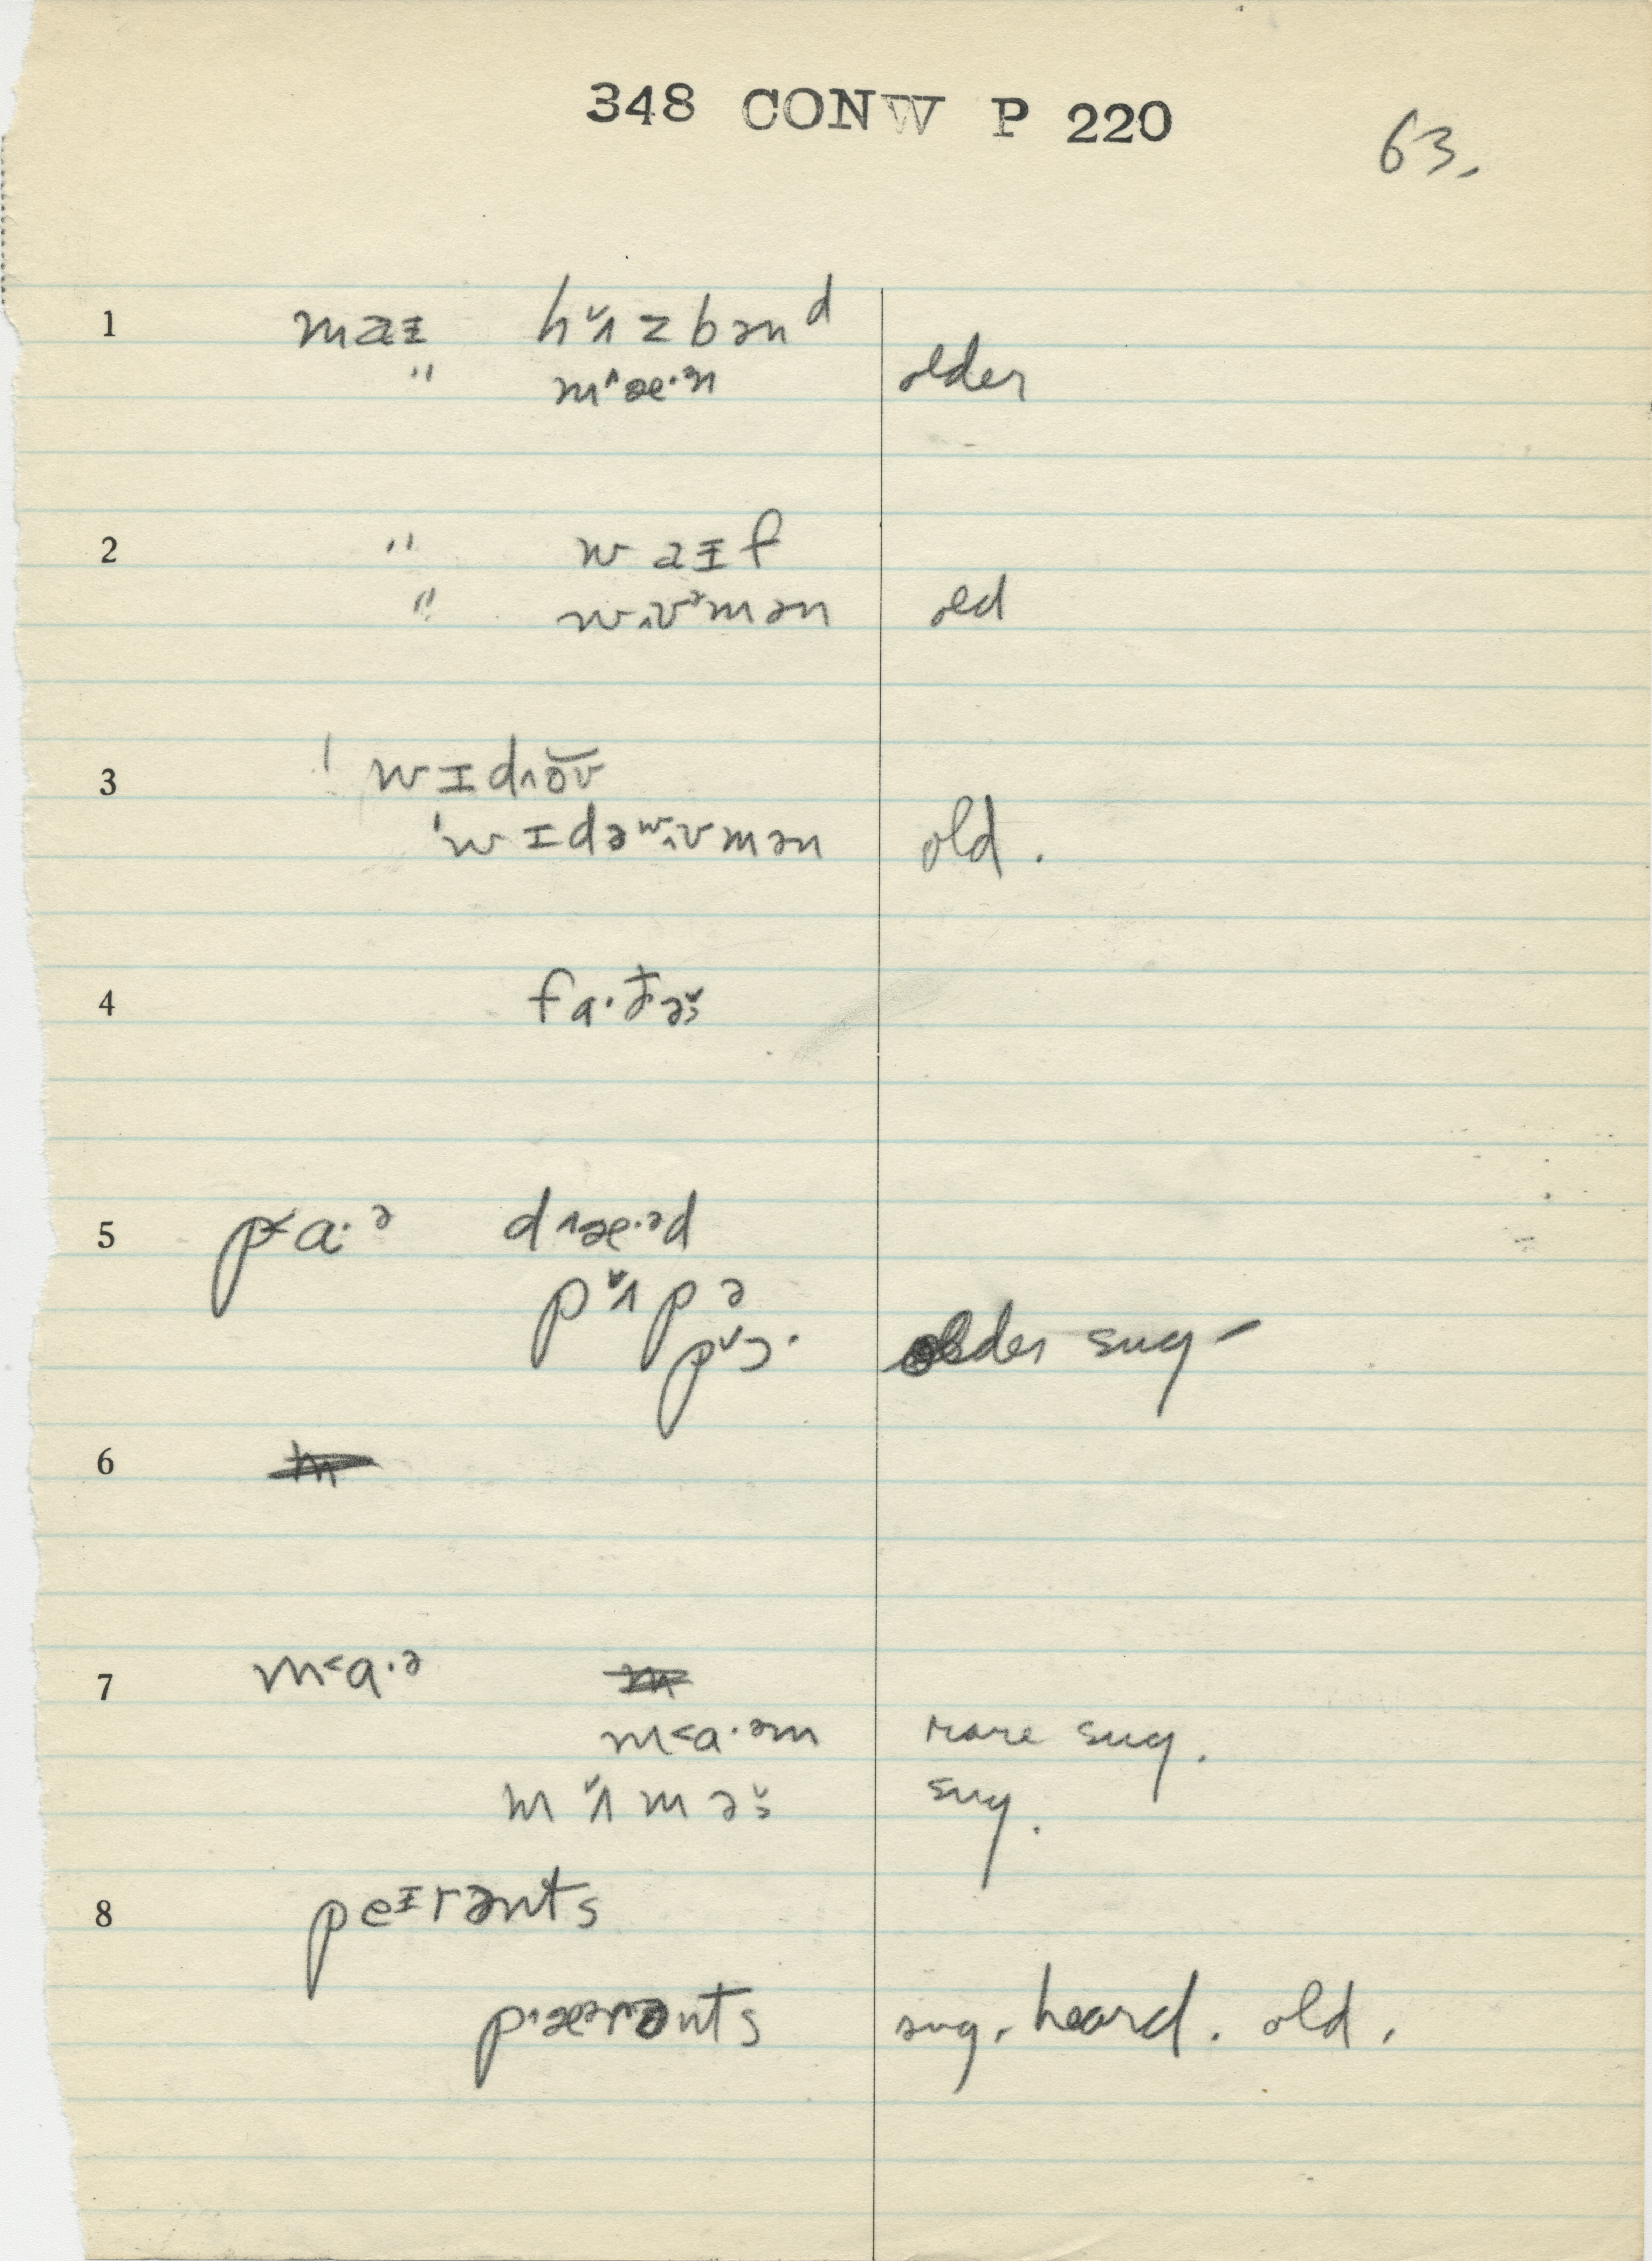 348 CONW P 220
63.
1 maɪ hʌ̌zbənᵈ
" m^æ·ᵊn older
2 " waɪf
" wʌʊᵊmən old
3 ˈwɪdʌo̯ʊ
ˈwɪdəʷʌʊmən old.
4 fa·ðɚ
5 p<a·ᵊ d^æ·ᵊd
pʌ̌pə
pˇɔ· older sug-
6
7 m<a·ᵊ
m<a·ᵊm rare sug.
mʌ̌mɚ sug.
8 peᶦrənts
p^æᵊrənts sug. heard. old.